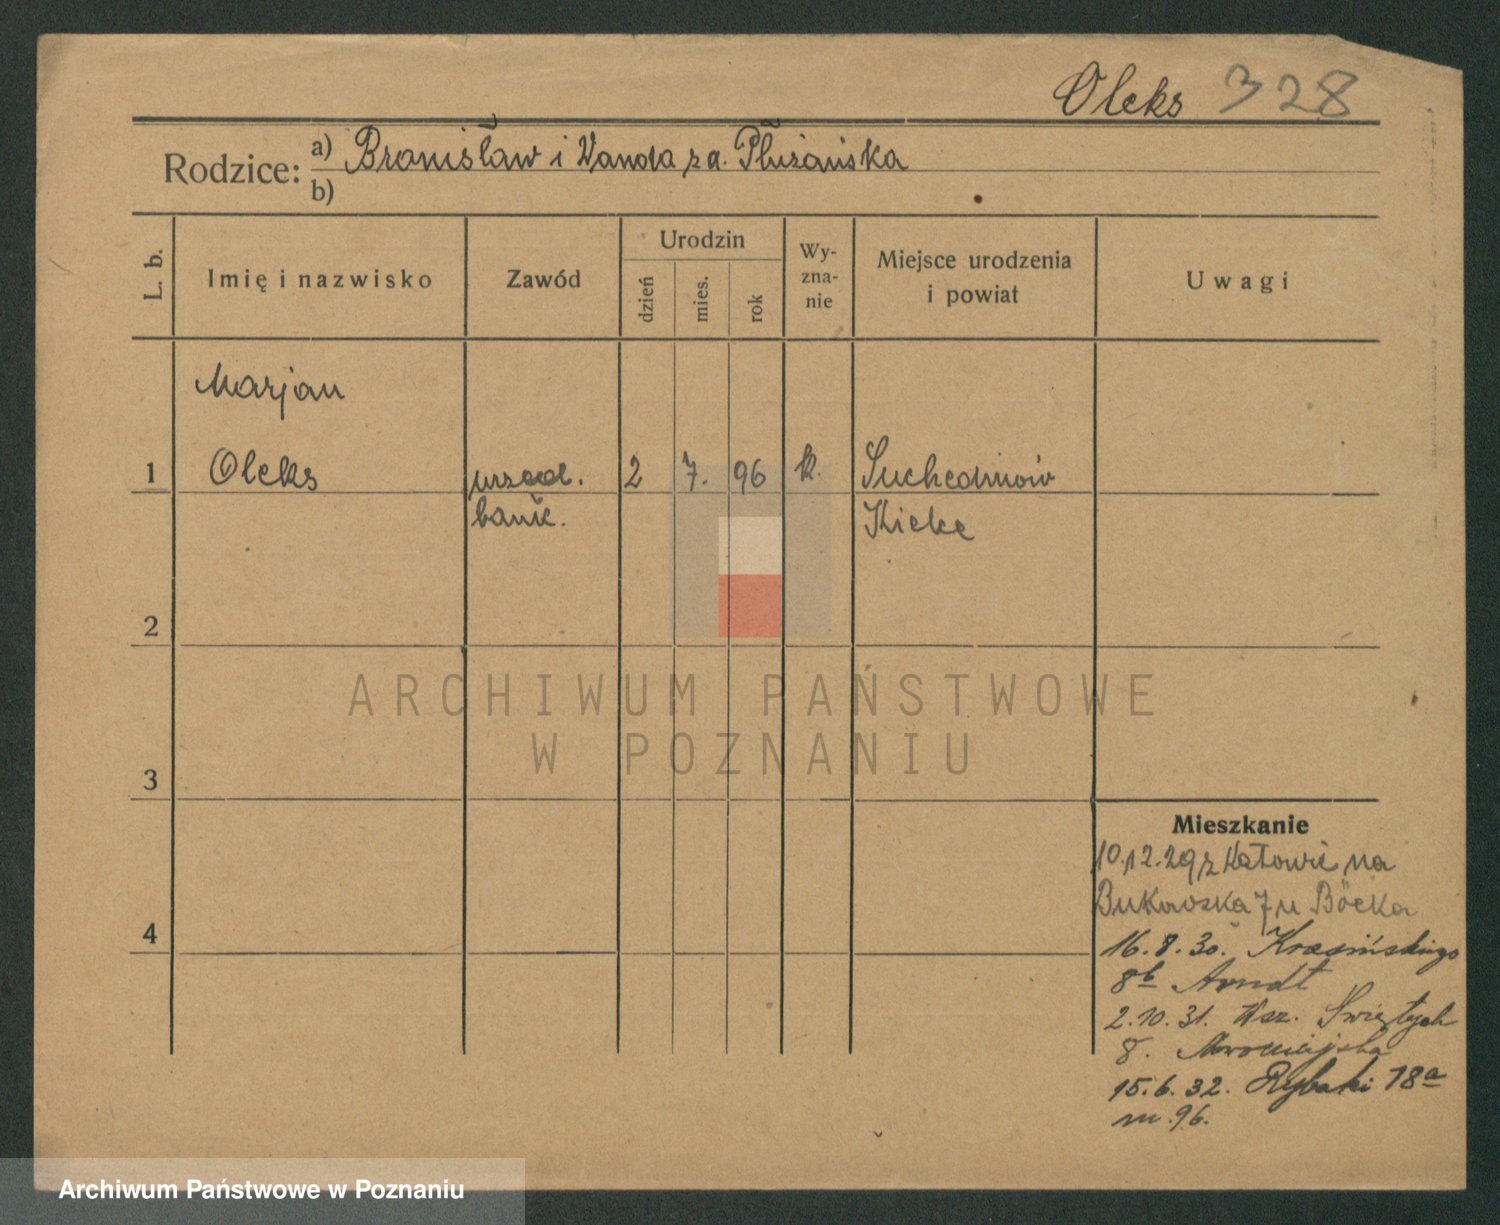 Oleks 328
Rodzice: a) Bronisław i Wanda z d. Płużańska
b)
L. b.
Imię i nazwisko
Zawód
Urodzin
dzień
mies.
rok
Wy-
zna-
nie
Miejsce urodzenia
i powiat
Uwagi
Marjan
1 Oleks urzęd. 2 7. 96 k. Suchedniów
bank. Kielce
2
ARCHIWUM PAŃSTWOWE
W POZNANIU
3
Mieszkanie
10.12.29 z Katowic na
Bukowska 7 u Böcka
4
16.8.30. Krasińskiego
8b Arndt
2.10.31. Wsz. Świętych
8.
15.6.32. Rybaki 18a
m. 96.
Archiwum Państwowe w Poznaniu